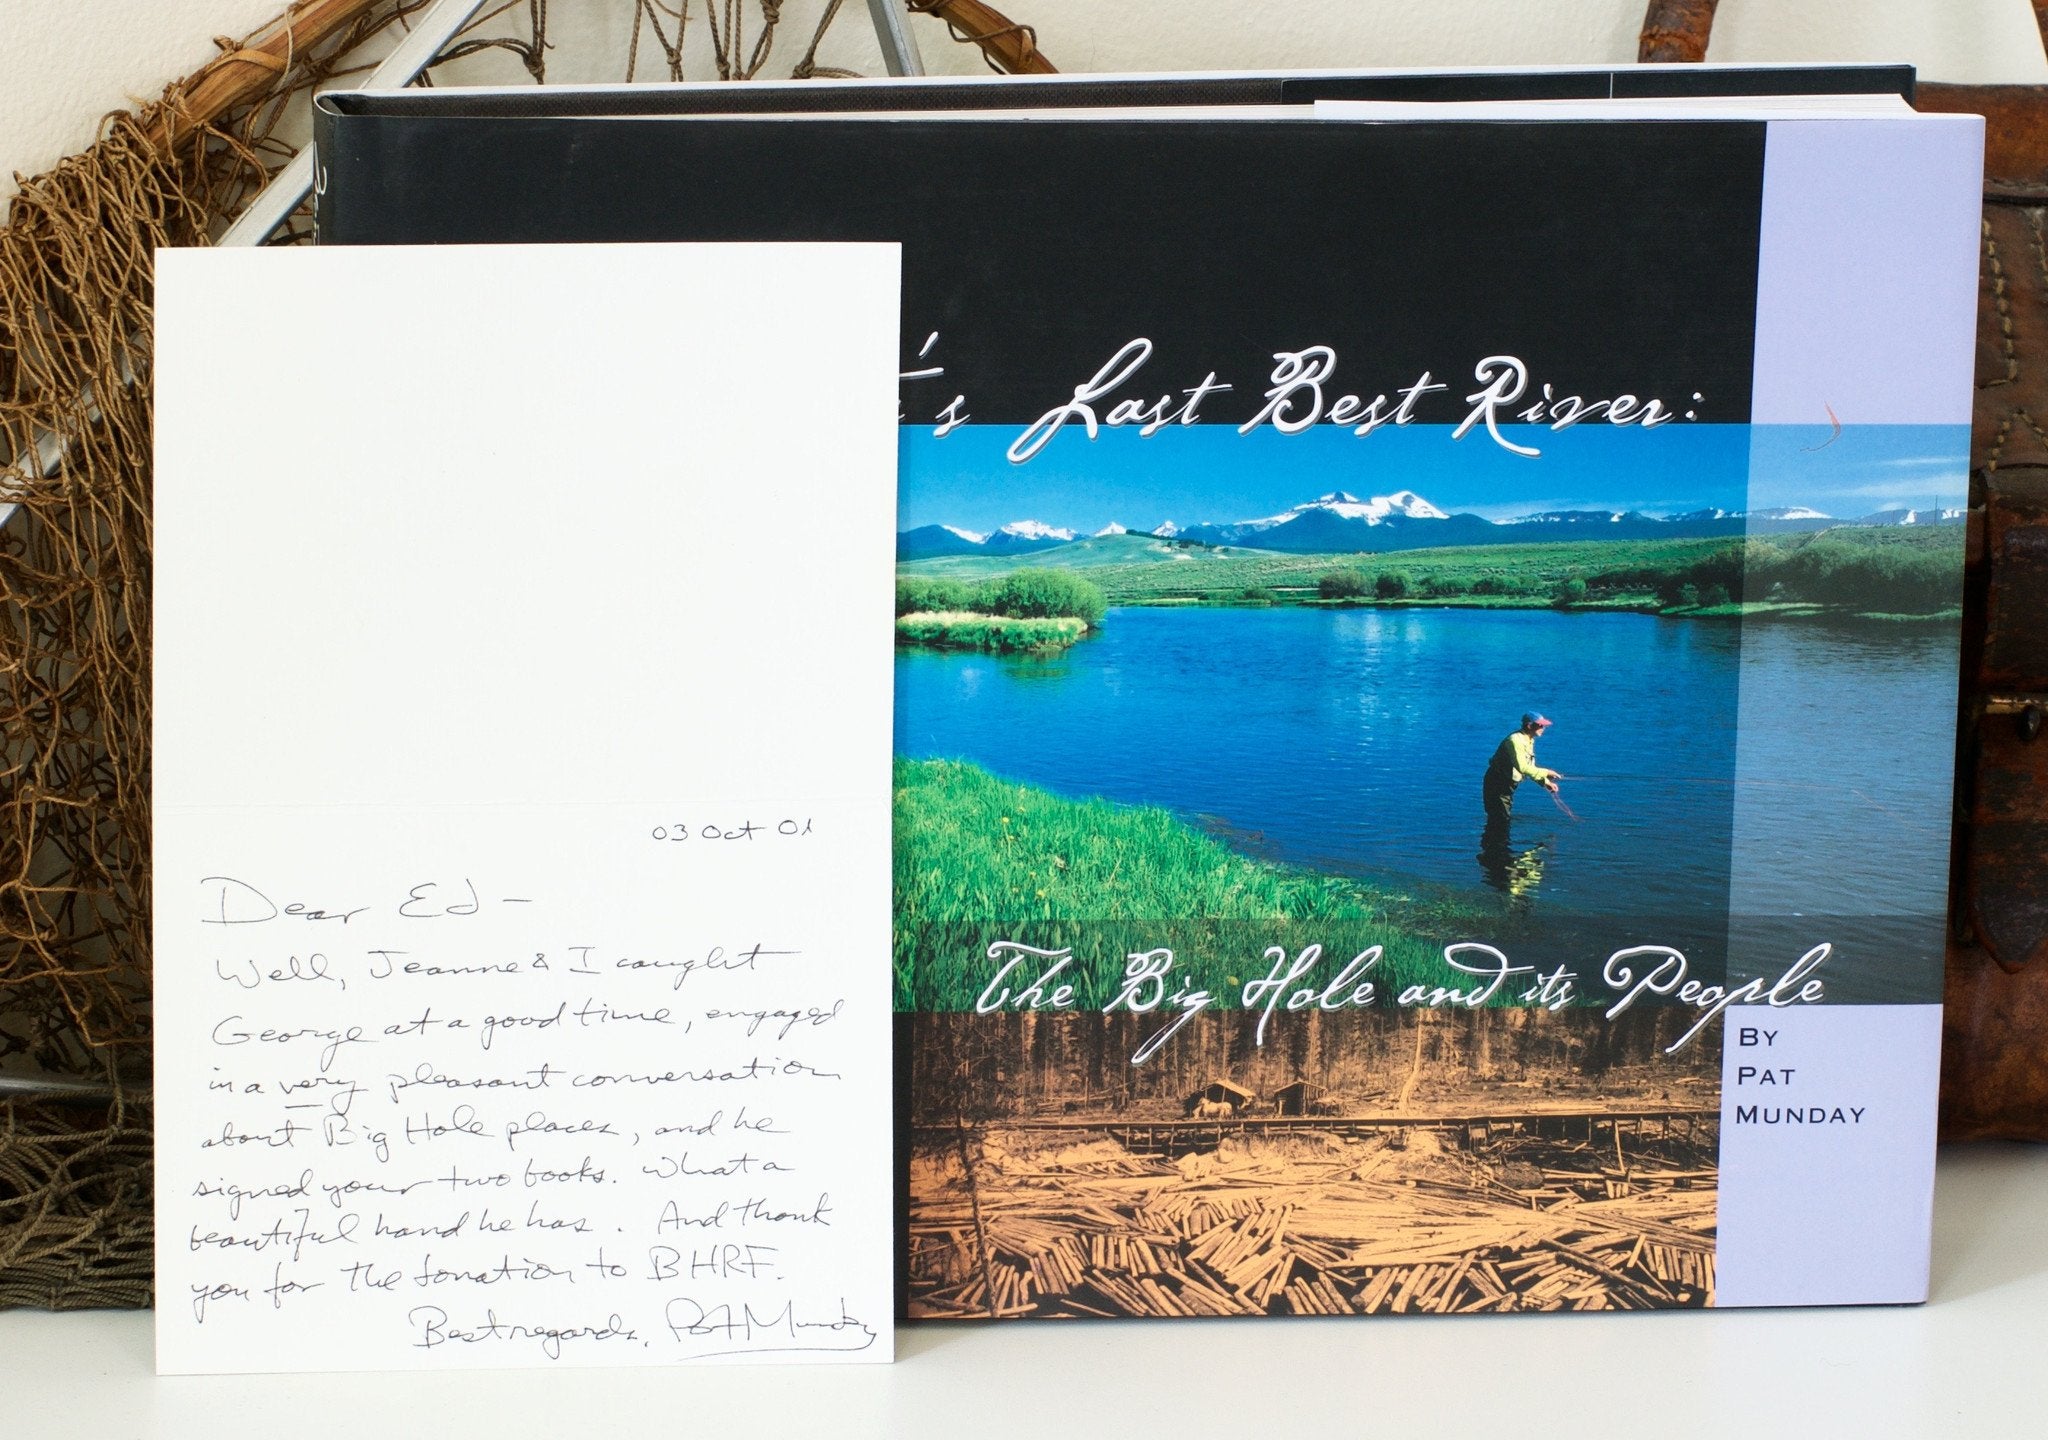 's Last Best River:
The Big Hole and its People
BY
PAT
MUNDAY
03 Oct 01
Dear Ed -
Well, Jeanne & I caught
George at a good time, engaged
in a very pleasant conversation
about Big Hole places, and he
signed your two books. What a
beautiful hand he has. And thank
you for the donation to BHRF.
Best regards, Pat Munday